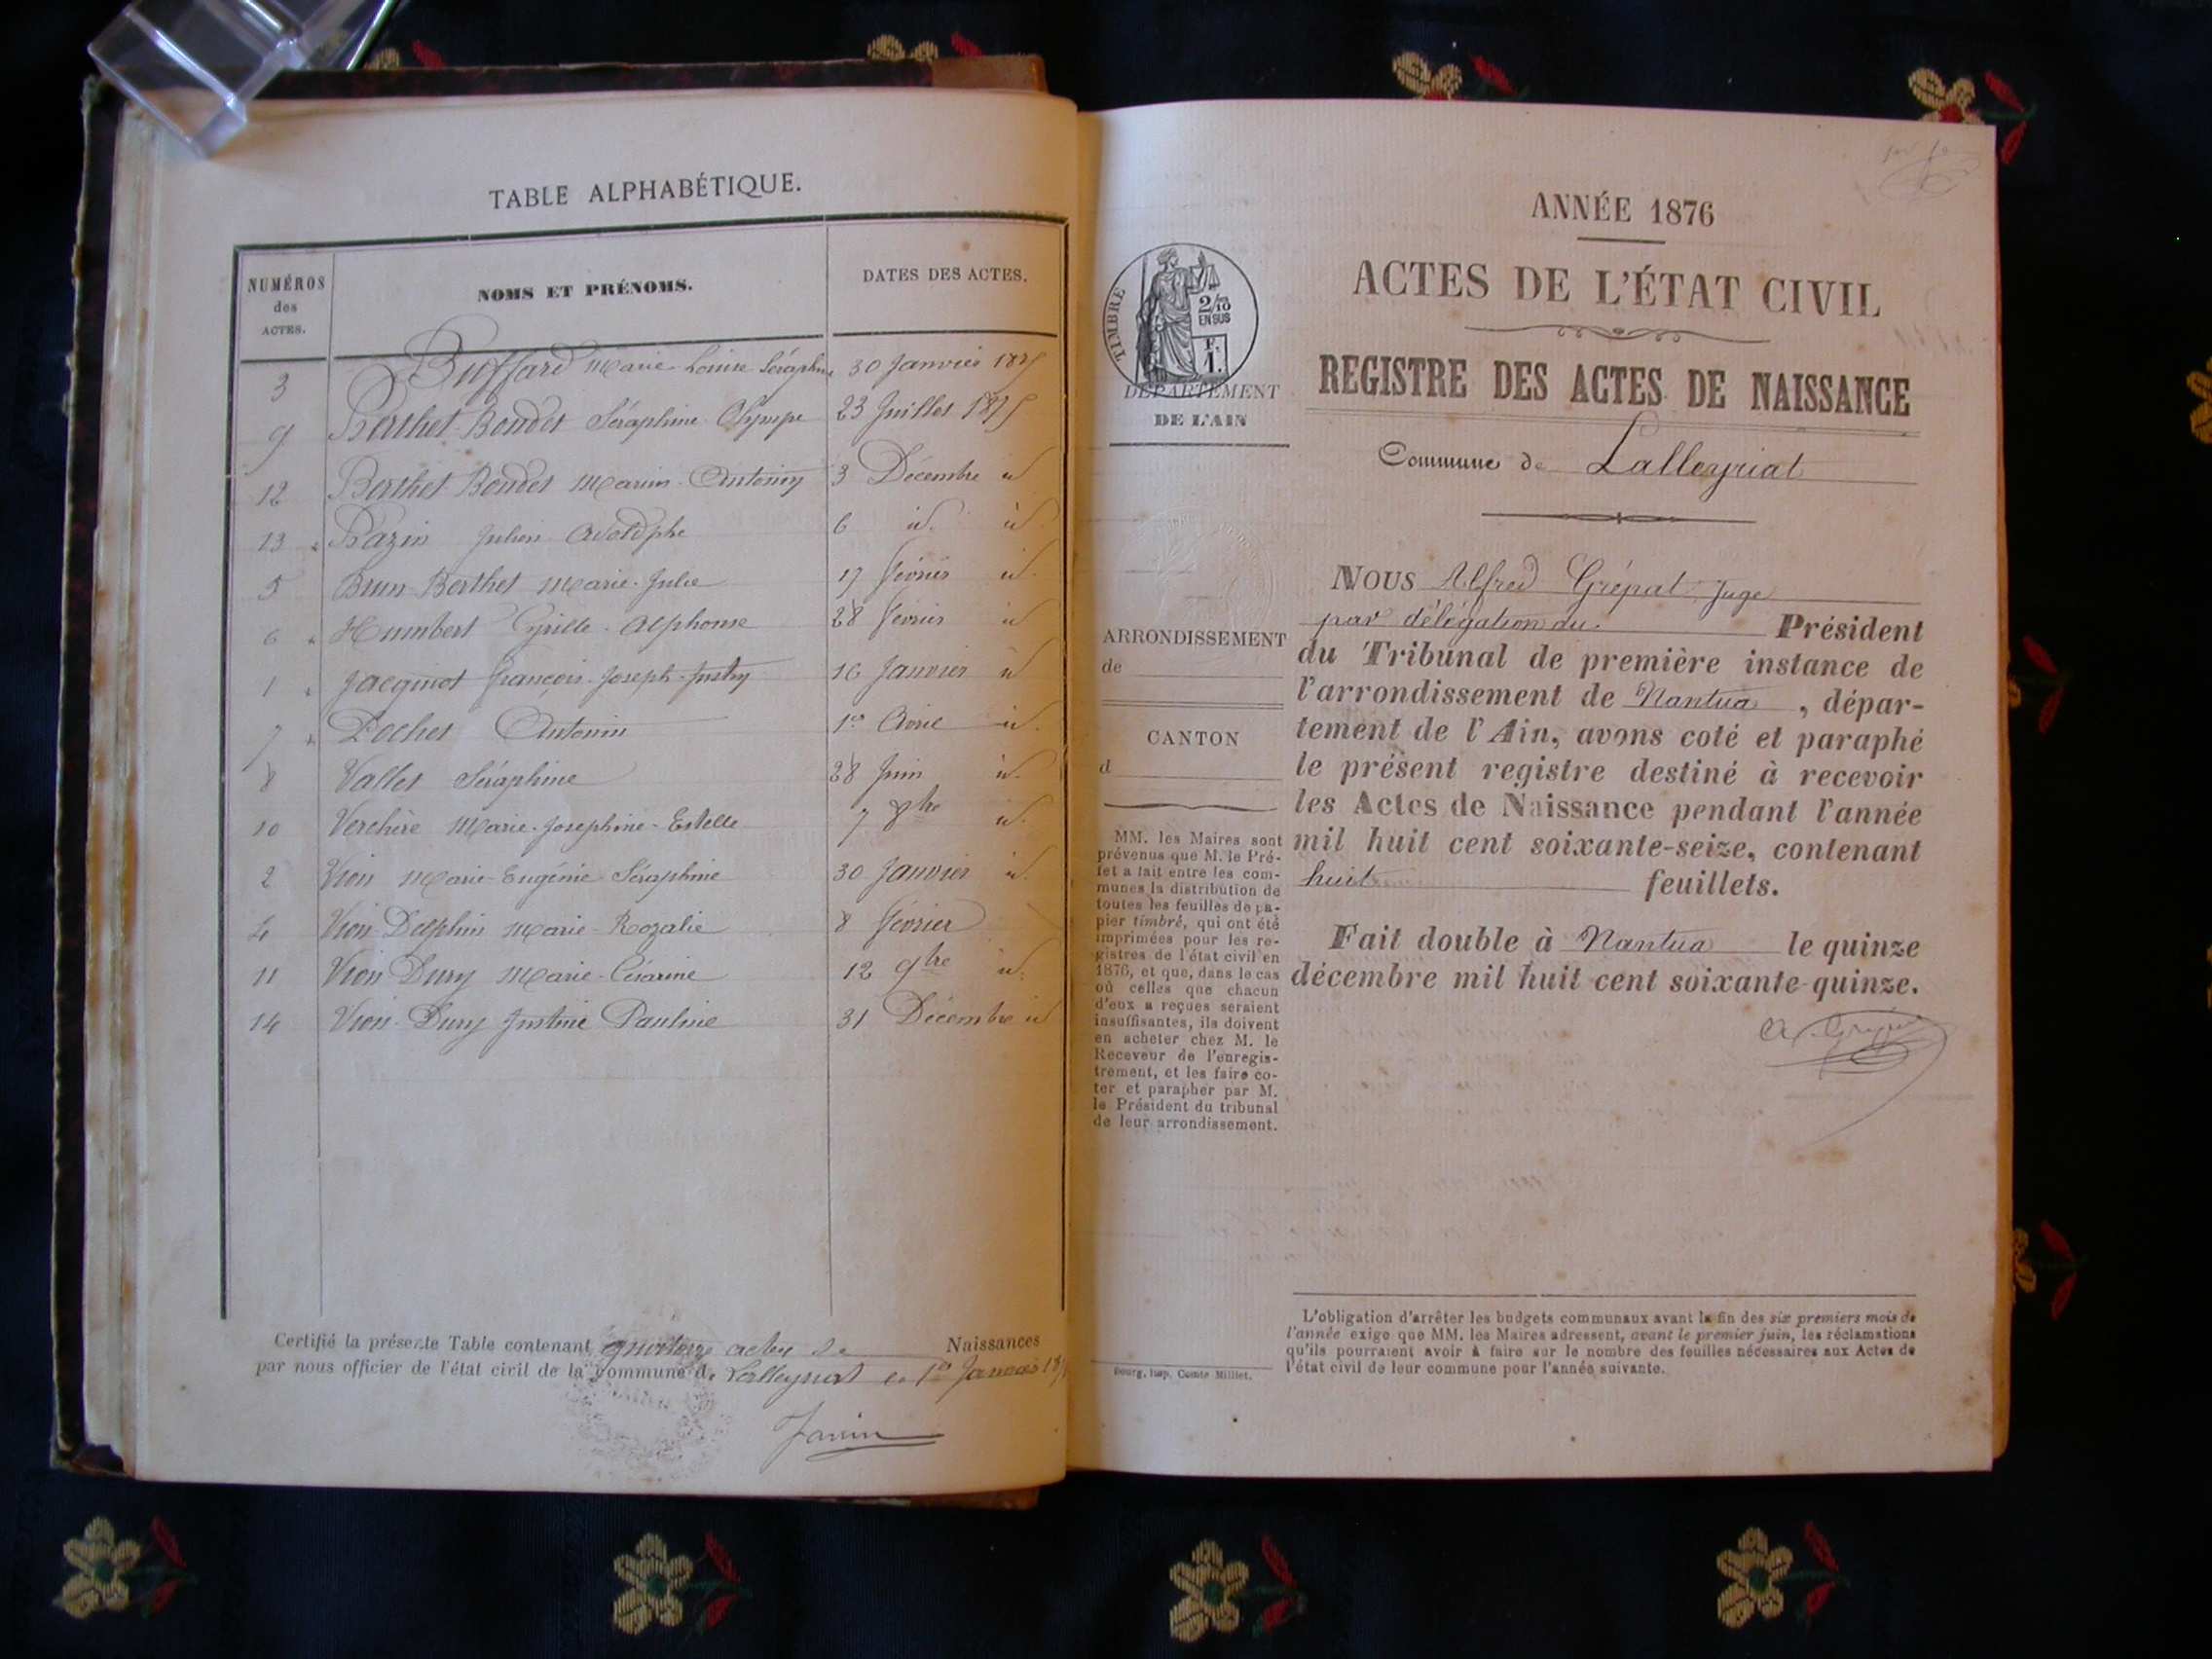 TABLE ALPHABÉTIQUE.
NUMÉROS
des
ACTES.
NOMS ET PRÉNOMS.
DATES DES ACTES.
3 Buffard Marie Louise Séraphine 30 Janvier 1875
9 Berthet-Bondet Séraphine Olympe 23 Juillet 1875
12 Berthet-Bondet Marius Antoniny 3 Décembre id
13 Bazin Julien Adolphe 6 id. id.
5 Brun-Berthet Marie-Julie 17 février id.
6 Humbert Cyrille-Alphonse 28 février id
1 Jacquinot François-Joseph-Justin 16 Janvier id
7 Pochet Antonin 1er Avril id.
8 Vallet Séraphine 28 Juin id.
10 Verchère Marie-Josephine-Estelle 7 8bre id.
2 Vion Marie-Eugénie Séraphine 30 Janvier id.
4 Vion-Delphin Marie-Rozalie 8 février
11 Vion-Dury Marie-Césarine 12 9bre id.
14 Vion-Dury Justine Pauline 31 Décembre id
Certifié la présente Table contenant quatorze actes de Naissances
par nous officier de l'état civil de la commune de Lalleyriat le 1er Janvier 187
Janin
ANNÉE 1876
ACTES DE L'ÉTAT CIVIL
REGISTRE DES ACTES DE NAISSANCE
Commune de Lalleyriat
TIMBRE
2/10
EN SUS
F.
1.
DÉPARTEMENT
DE L'AIN
ARRONDISSEMENT
de
CANTON
d
MM. les Maires sont
prévenus que M. le Pré-
fet a fait entre les com-
munes la distribution de
toutes les feuilles de pa-
pier timbré, qui ont été
imprimées pour les re-
gistres de l'état civil en
1876, et que, dans le cas
où celles que chacun
d'eux a reçues seraient
insuffisantes, ils doivent
en acheter chez M. le
Receveur de l'enregis-
trement, et les faire co-
ter et parapher par M.
le Président du tribunal
de leur arrondissement.
Bourg, imp. Comte Milliet.
NOUS Alfred Grépat, Juge
par délégation du Président
du Tribunal de première instance de
l'arrondissement de Nantua, dépar-
tement de l'Ain, avons coté et paraphé
le présent registre destiné à recevoir
les Actes de Naissance pendant l'année
mil huit cent soixante-seize, contenant
huit feuillets.
Fait double à Nantua le quinze
décembre mil huit cent soixante-quinze.
L'obligation d'arrêter les budgets communaux avant la fin des six premiers mois de
l'année exige que MM. les Maires adressent, avant le premier juin, les réclamations
qu'ils pourraient avoir à faire sur le nombre des feuilles nécessaires aux Actes de
l'état civil de leur commune pour l'année suivante.